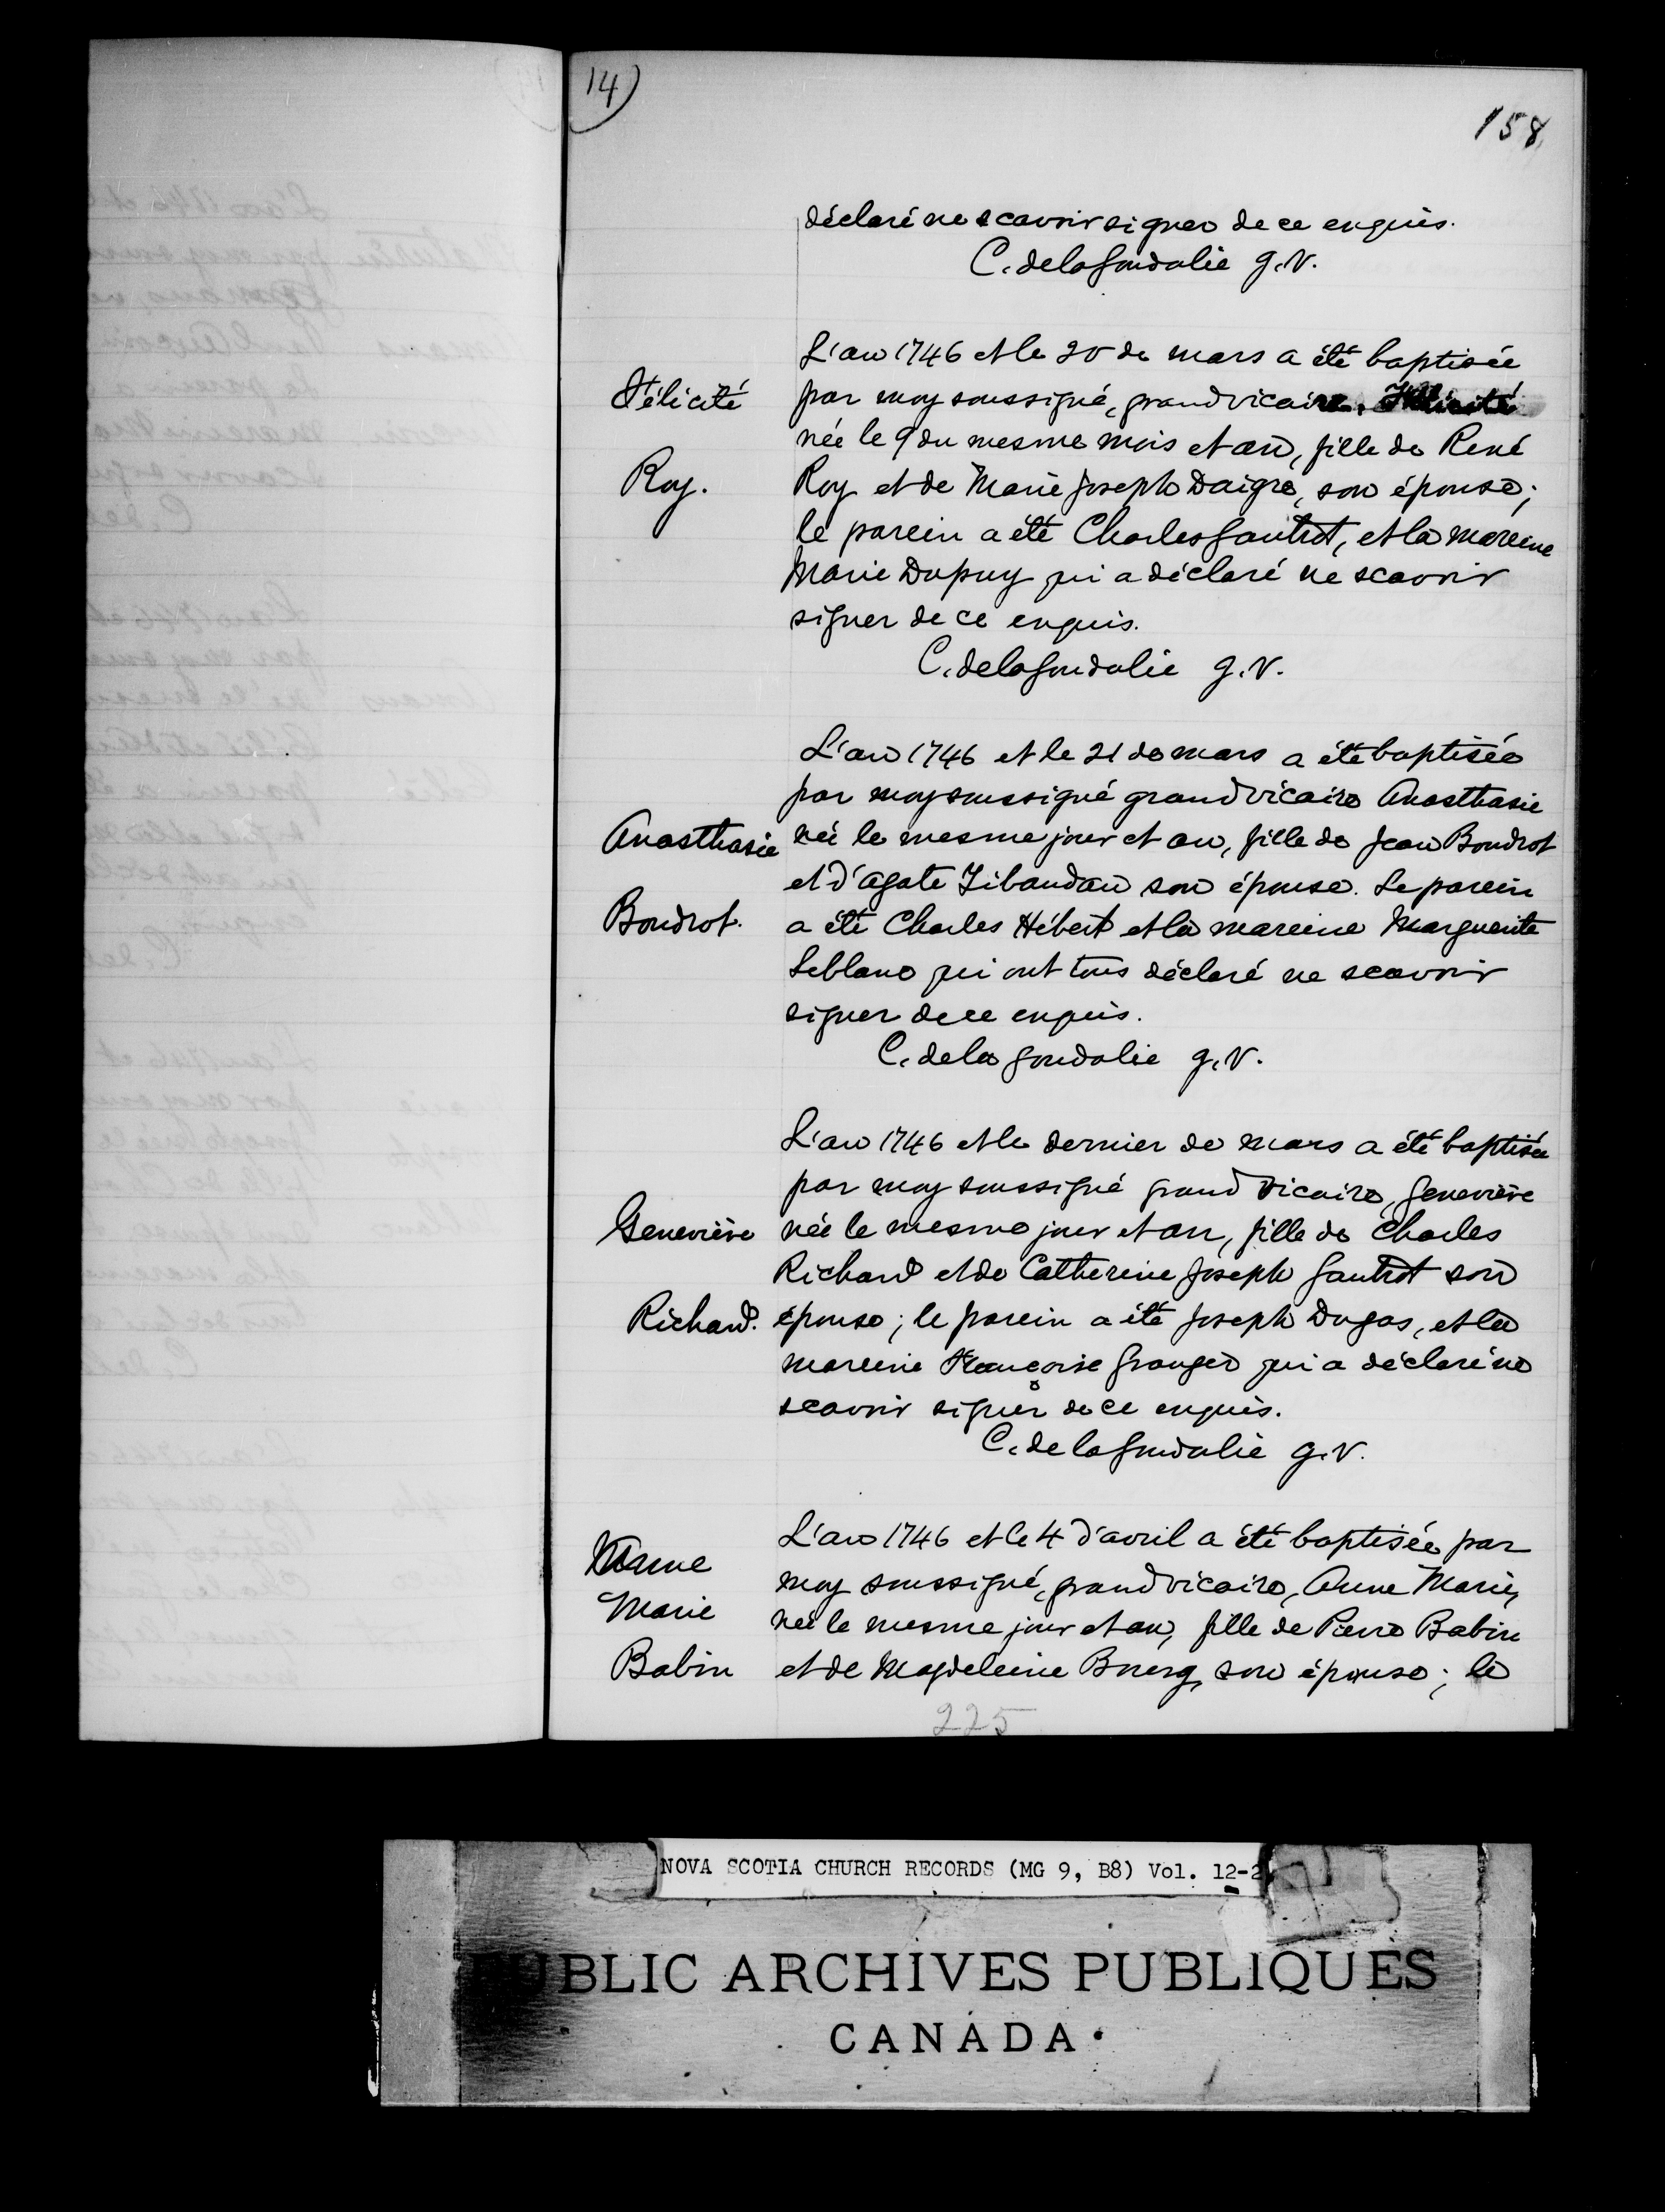 14)
158
déclaré ne scavoir signer de ce enquis.
C. de la Goudalie g.v.
L'an 1746 et le 20 de mars a été baptisée
Félicité
par moy soussigné, grand vicaire, Félicité
née le 9 du mesme mois et an, fille de René
Roy.
Roy et de Marie Joseph Daigre, son épouse;
le parein a été Charles Gautrot, et la mareine
Marie Dupuy qui a déclaré ne scavoir
signer de ce enquis.
C. de la Goudalie g.v.
L'an 1746 et le 21 de mars a été baptisée
par moy soussigné grand vicaire Anasthasie
Anasthasie
née le mesme jour et an, fille de Jean Boudrot
et d'Agate Tibaudau son épouse. Le parein
Boudrot.
a été Charles Hébert et la mareine Marguerite
Leblanc qui ont tous déclaré ne scavoir
signer de ce enquis.
C. de la Goudalie g.v.
L'an 1746 et le dernier de mars a été baptisée
par moy soussigné grand vicaire, Geneviève
Geneviève
née le mesme jour et an, fille de Charles
Richard et de Catherine Joseph Gautrot son
Richard.
épouse; le parein a été Joseph Dugas, et la
mareine Françoise Granger qui a déclaré ne
scavoir signer de ce enquis.
C. de la Goudalie g.v.
L'an 1746 et le 4 d'avril a été baptisée par
Anne
moy soussigné, grand vicaire, Anne Marie,
Marie
née le mesme jour et an, fille de Pierre Babin
Babin
et de Magdeleine Bourg, son épouse; le
225
NOVA SCOTIA CHURCH RECORDS (MG 9, B8) Vol. 12-2
PUBLIC ARCHIVES PUBLIQUES
CANADA